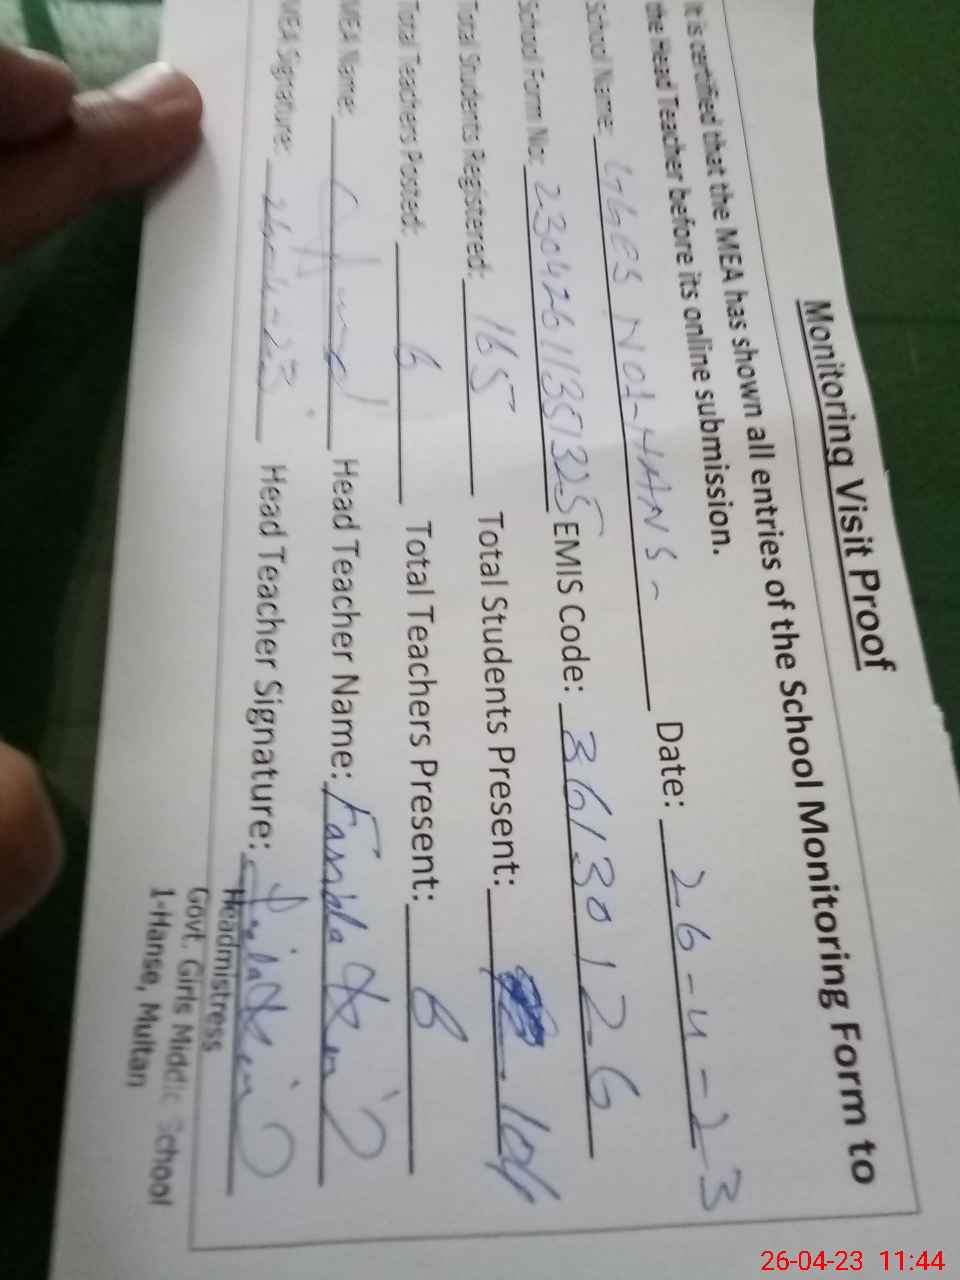 Monitoring Visit Proof
It is certified that the MEA has shown all entries of the School Monitoring Form to
the Head Teacher before its online submission.
School Name: GGES NO1-HANS - Date: 26-4-23
School Form No: 23042611351325 EMIS Code: 36130126
Total Students Registered: 165 Total Students Present: 104
Total Teachers Posted: 6 Total Teachers Present: 6
MEA Name: Head Teacher Name:
MEA Signature: 26-4-23 Head Teacher Signature:
Headmistress
Govt. Girls Middle School
1-Hanse, Multan
26-04-23 11:44